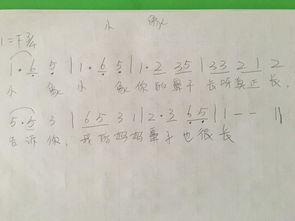 小 象
1=F 3/4
1·6 5 | 1·6 5 | 1·2 35 | 33 2 1 2
小 象 小 象 你的鼻子 长呀真正长,
5·5 3 | 65 3 1 | 2·3 65 | 1 - - ‖
告诉你, 我的妈妈鼻子也很长